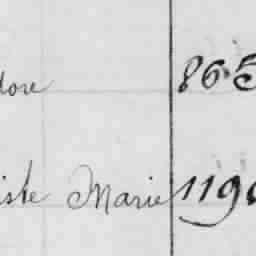 dore 865
iste Marie 1190